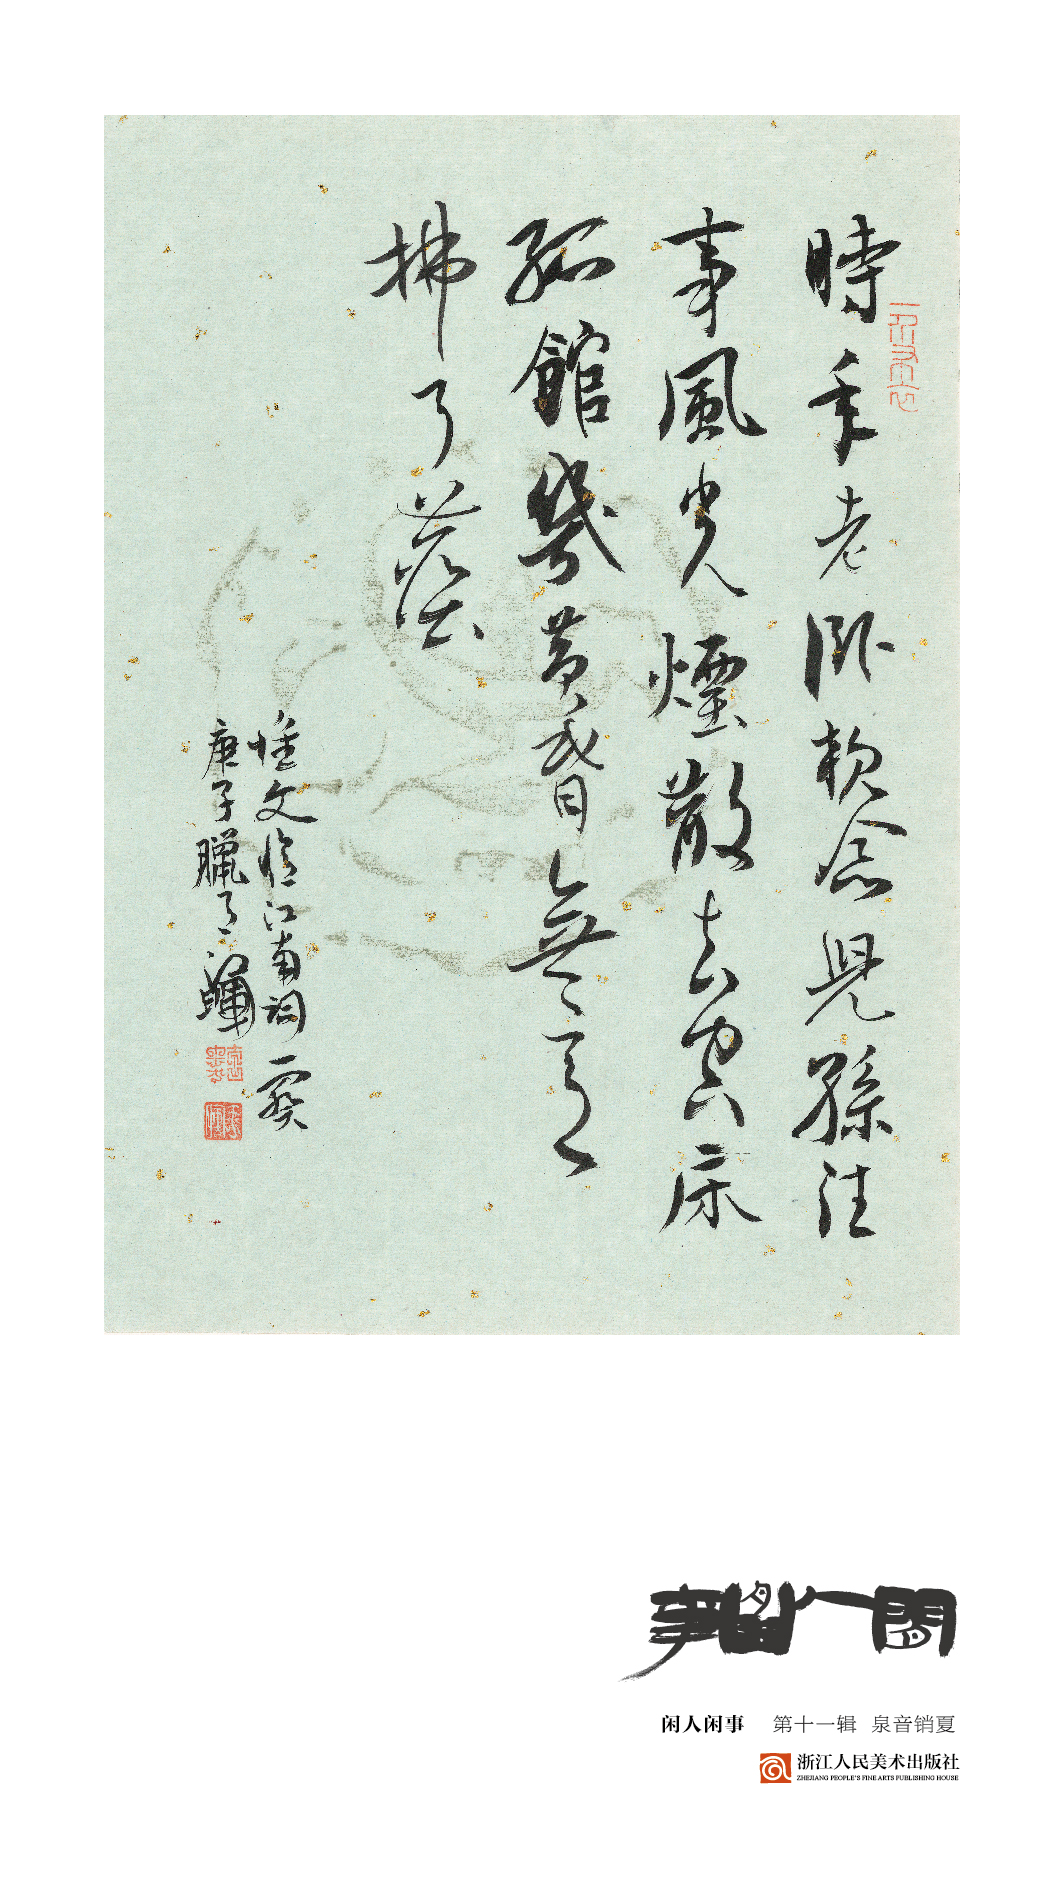 時年老卧枕念兒孫往
事風光煙散去空床
孤館幾黃昏無言
拂了塵
文憶江南詞一闋
庚子臘月
闲人闲事 第十一辑 泉音销夏
浙江人民美术出版社
ZHEJIANG PEOPLE'S FINE ARTS PUBLISHING HOUSE